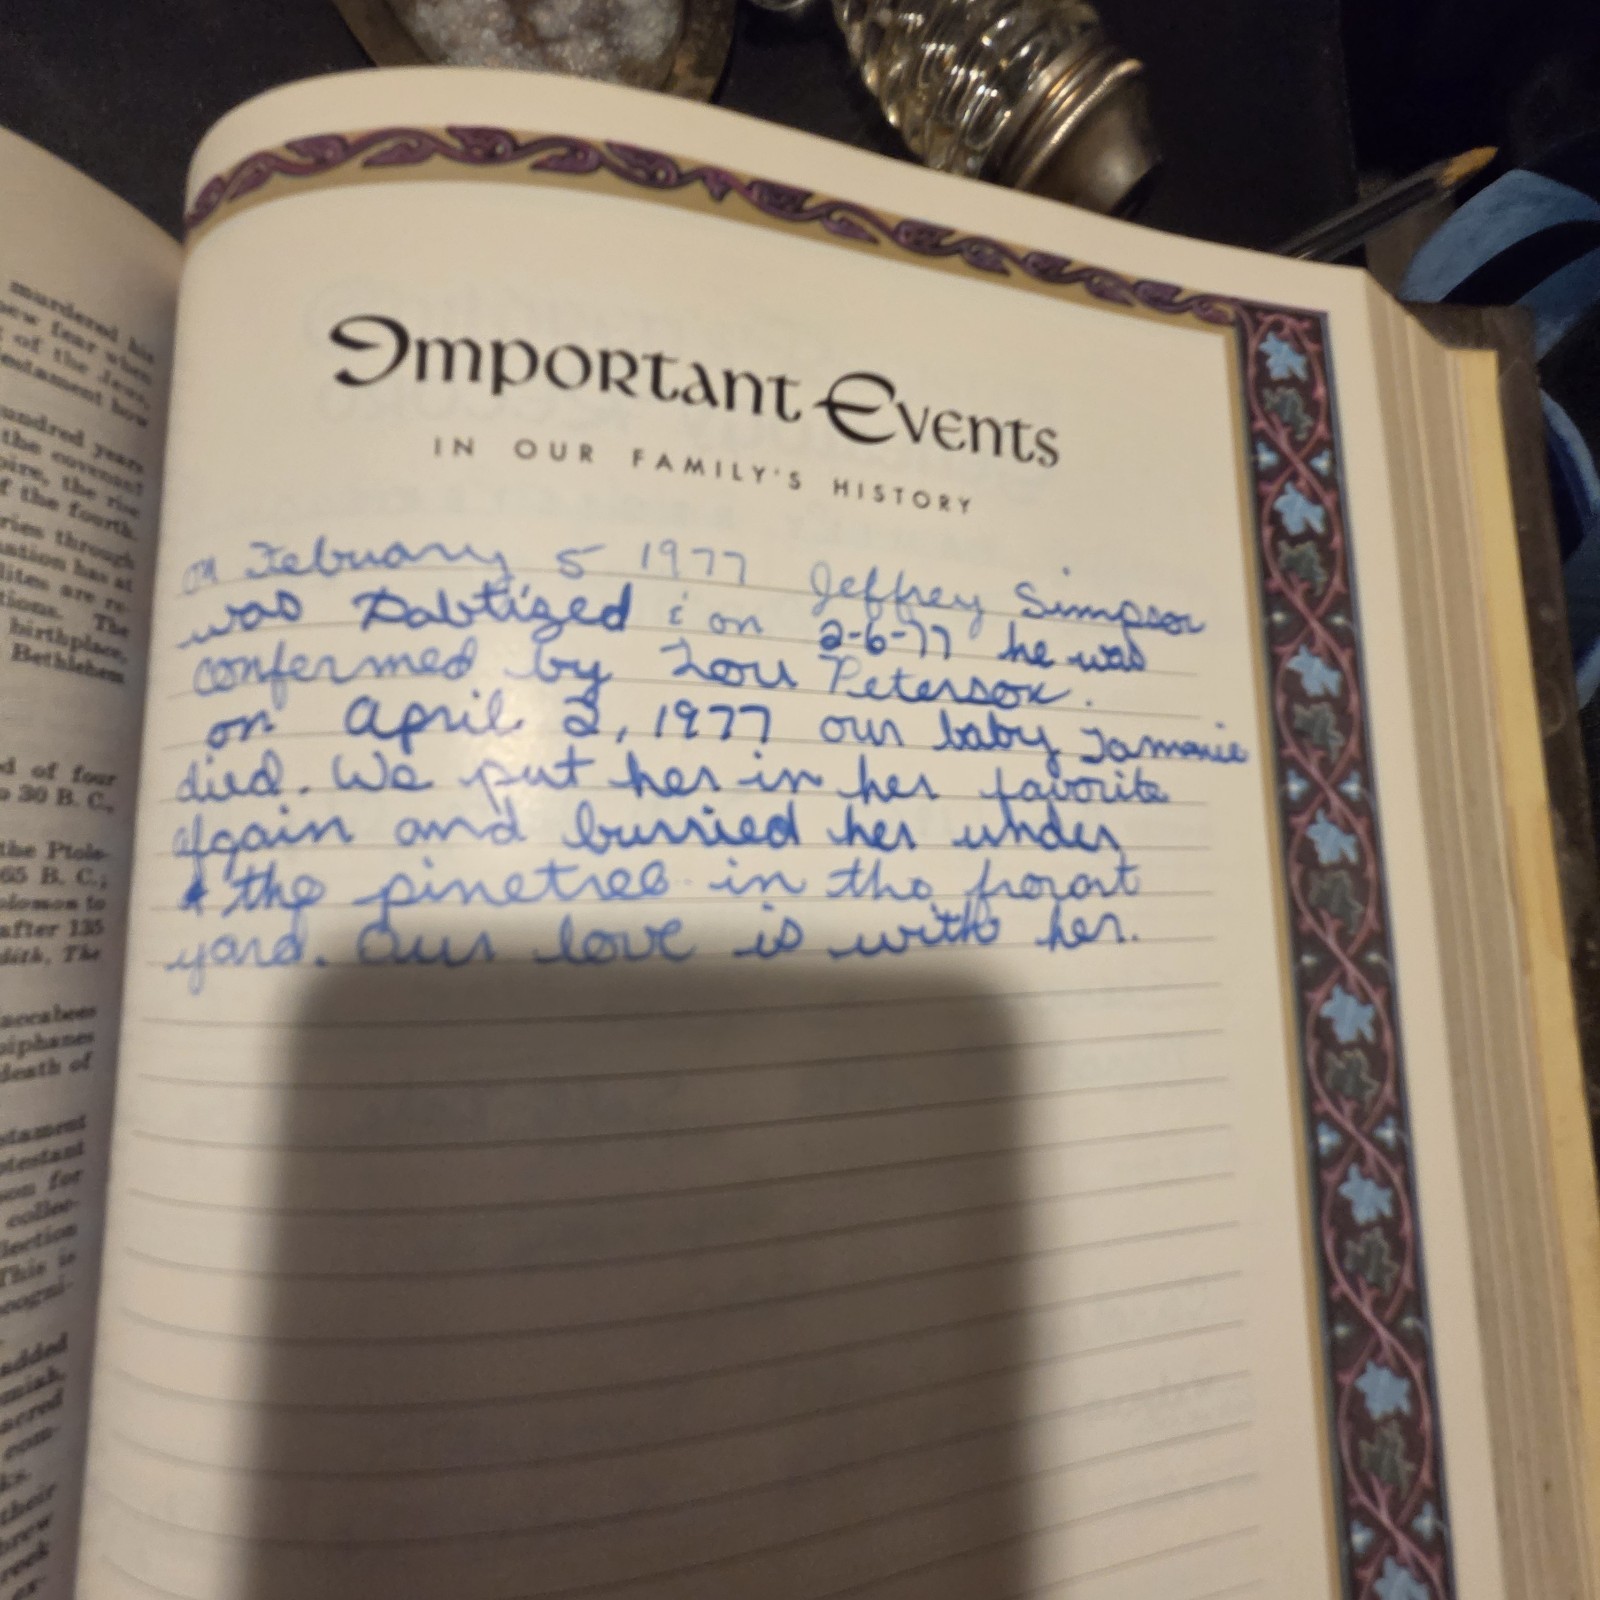 murdered his
new fear when
of the Jews,
estament how
undred years
the covenant
pire, the rise
f the fourth
ries through
nation has at
lites are re-
tions. The
birthplace,
Bethlehem
d of four
o 30 B. C.,
the Ptole-
65 B. C.;
olomon to
after 135
dith, The
accabees
piphanes
death of
stament
otestant
son for
collec-
llection
This is
cogni-
added
miah,
acred
com-
ks.
their
brew
reek
ex-
Important Events
IN OUR FAMILY'S HISTORY
on Febuary 5 1977 Jeffrey Simpson
was Babtized & on 2-6-77 he was
confermed by Lou Peterson.
on April 2, 1977 our baby
died. We put her in her favorite
afgain and burried her under
the pinetree in the front
yard. Our love is with her.